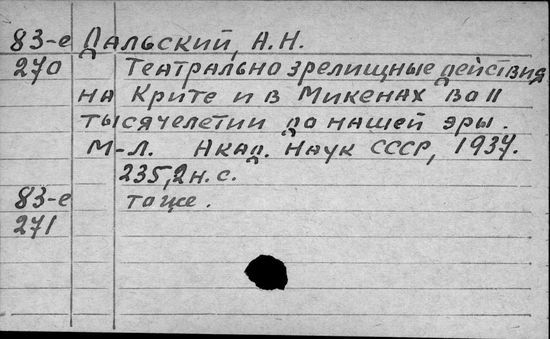 83-е Дальский, А.Н.
270 Театрально зрелищные действия
на Крите и в Микенах во II
тысячелетии до нашей эры.
М-Л. Акад. Наук СССР, 1937.
235,2 н. с.
83-е тоже.
271